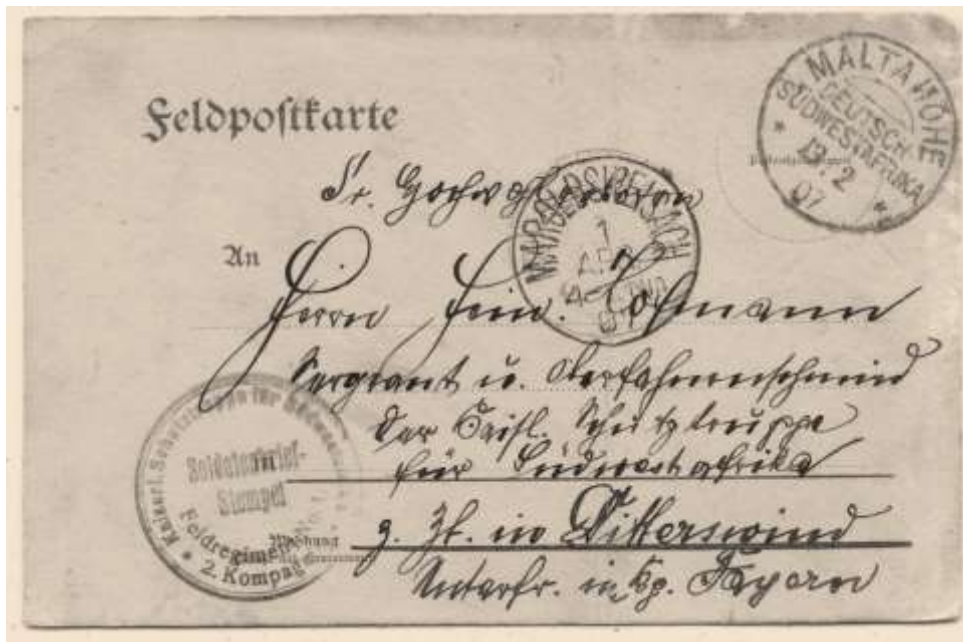 MALTAHÖHE
DEUTSCH-
SÜDWESTAFRIKA
13. 2
07
Feldpostkarte
Sr. Hochwohlgeboren
MAROLDSWEISACH
1
APR
07
An
Herrn Hein.
Sergeant u. Oberfahnenschmied
der Kaisl. Schutztruppe
für Südwestafrika
z. Zt. in Ditterswind
Unterfr. in Kg. Bayern
Kaiserl. Schutztruppe für
Soldatenbrief-
Stempel
Feldregiment
2. Kompag
Wohnung